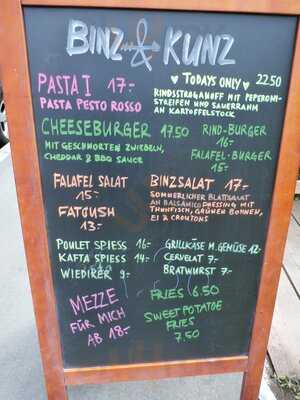 BINZ & KUNZ
PASTA I 17.-
PASTA PESTO ROSSO
♥ TODAYS ONLY ♥ 22.50
RINDSSTROGANOFF MIT PEPERONI-
STREIFEN UND SAUERRAHM
AN KARTOFFELSTOCK
CHEESEBURGER 17.50
MIT GESCHMORTEN ZWIEBELN,
CHEDDAR & BBQ SAUCE
RIND-BURGER
16.-
FALAFEL-BURGER
15.-
FALAFEL SALAT
15.-
FATOUSH
13.-
BINZSALAT 17.-
SOMMERLICHER BLATTSALAT
AN BALSAMICO DRESSING MIT
THUNFISCH, GRÜNEN BOHNEN,
EI & CROUTONS
POULET SPIESS 16.-
KAFTA SPIESS 14.-
WIEDIKER 9.-
GRILLKÄSE M. GEMÜSE 12.-
CERVELAT 7.-
BRATWURST 7.-
MEZZE
FÜR MICH
AB 18.-
FRIES 6.50
SWEETPOTATOE
FRIES
7.50